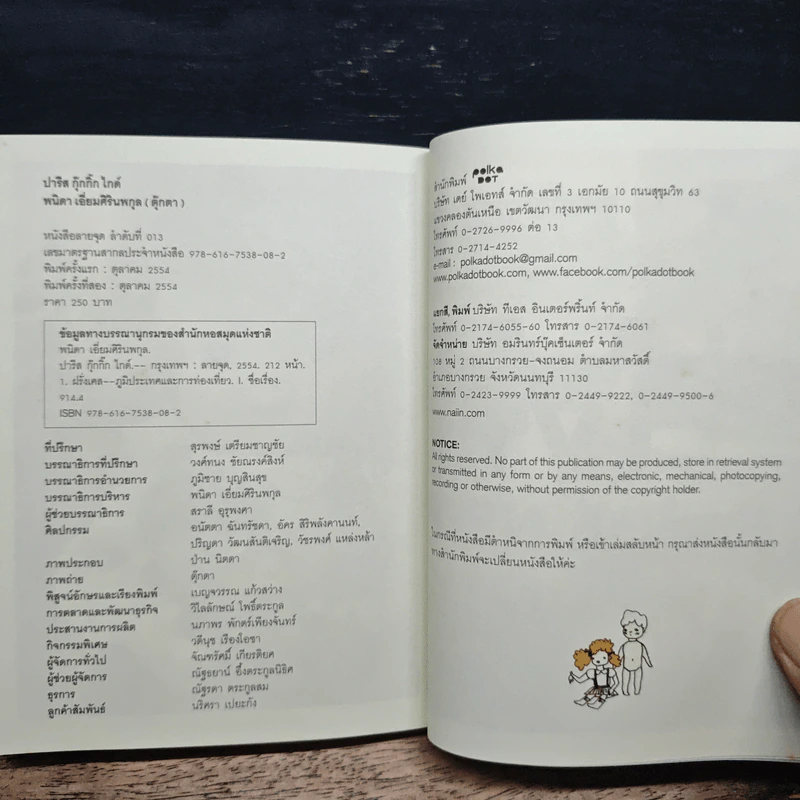 ปารีส กุ๊กกิ๊ก ไกด์
พนิดา เอี่ยมศิรินพกุล ( ตุ๊กตา )
หนังสือลายจุด ลำดับที่ 013
เลขมาตรฐานสากลประจำหนังสือ 978-616-7538-08-2
พิมพ์ครั้งแรก : ตุลาคม 2554
พิมพ์ครั้งที่สอง : ตุลาคม 2554
ราคา 250 บาท
ข้อมูลทางบรรณานุกรมของสำนักหอสมุดแห่งชาติ
พนิดา เอี่ยมศิรินพกุล.
ปารีส กุ๊กกิ๊ก ไกด์.-- กรุงเทพฯ : ลายจุด, 2554. 212 หน้า.
1. ฝรั่งเศส--ภูมิประเทศและการท่องเที่ยว. I. ชื่อเรื่อง.
914.4
ISBN 978-616-7538-08-2
ที่ปรึกษา สุรพงษ์ เตรียมชาญชัย
บรรณาธิการที่ปรึกษา วงศ์ทนง ชัยณรงค์สิงห์
บรรณาธิการอำนวยการ ภูมิชาย บุญสินสุข
บรรณาธิการบริหาร พนิดา เอี่ยมศิรินพกุล
ผู้ช่วยบรรณาธิการ สราลี อุรุพงศา
ศิลปกรรม อนัตตา ฉันทรัชดา, อัคร สิริพลังคานนท์,
ปริญดา วัฒนสันติเจริญ, วัชรพงศ์ แหล่งหล้า
ภาพประกอบ ป่าน นิตตา
ภาพถ่าย ตุ๊กตา
พิสูจน์อักษรและเรียงพิมพ์ เบญจวรรณ แก้วสว่าง
การตลาดและพัฒนาธุรกิจ วิไลลักษณ์ โพธิ์ตระกูล
ประสานงานการผลิต นภาพร พักตร์เพียงจันทร์
กิจกรรมพิเศษ วดีนุช เรืองโอชา
ผู้จัดการทั่วไป จัณฑรัศมิ์ เกียรติยศ
ผู้ช่วยผู้จัดการ ณัฐธยาน์ อึ้งตระกูลนิธิศ
ธุรการ ณัฐรดา ตระกูลสม
ลูกค้าสัมพันธ์ นริศรา เปยะกัง
สำนักพิมพ์ polka DOT
บริษัท เดย์ โพเอทส์ จำกัด เลขที่ 3 เอกมัย 10 ถนนสุขุมวิท 63
แขวงคลองตันเหนือ เขตวัฒนา กรุงเทพฯ 10110
โทรศัพท์ 0-2726-9996 ต่อ 13
โทรสาร 0-2714-4252
e-mail : polkadotbook@gmail.com
www.polkadotbook.com, www.facebook.com/polkadotbook
แยกสี, พิมพ์ บริษัท ทีเอส อินเตอร์พริ้นท์ จำกัด
โทรศัพท์ 0-2174-6055-60 โทรสาร 0-2174-6061
จัดจำหน่าย บริษัท อมรินทร์บุ๊คเซ็นเตอร์ จำกัด
108 หมู่ 2 ถนนบางกรวย-จงถนอม ตำบลมหาสวัสดิ์
อำเภอบางกรวย จังหวัดนนทบุรี 11130
โทรศัพท์ 0-2423-9999 โทรสาร 0-2449-9222, 0-2449-9500-6
www.naiin.com
NOTICE:
All rights reserved. No part of this publication may be produced, store in retrieval system
or transmitted in any form or by any means, electronic, mechanical, photocopying,
recording or otherwise, without permission of the copyright holder.
ในกรณีที่หนังสือมีตำหนิจากการพิมพ์ หรือเข้าเล่มสลับหน้า กรุณาส่งหนังสือนั้นกลับมา
ทางสำนักพิมพ์จะเปลี่ยนหนังสือให้ค่ะ